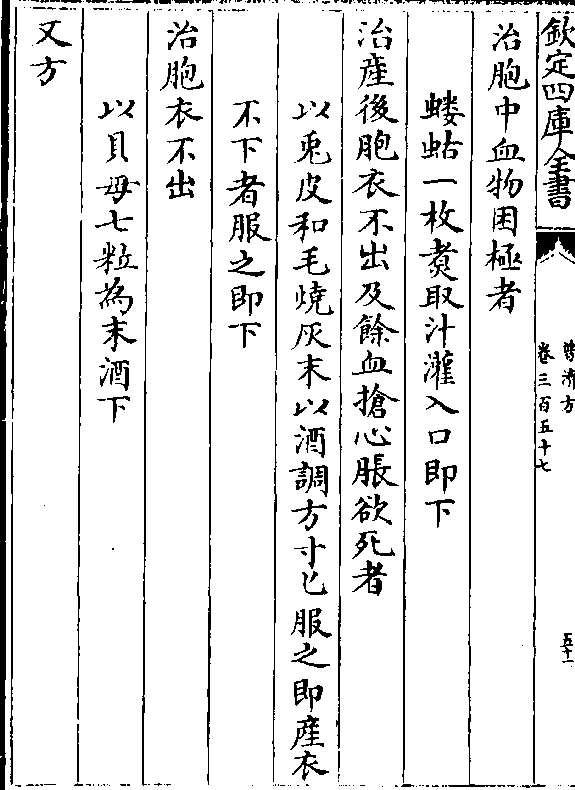 欽定四庫全書
普濟方
卷三百五十七
五十一
治胞中血物困極者
螻蛄一枚煑取汁灌入口即下
治產後胞衣不出及餘血搶心脹欲死者
以兎皮和毛燒灰末以酒調方寸匕服之即產衣
不下者服之即下
治胞衣不出
以貝母七粒為末酒下
又方